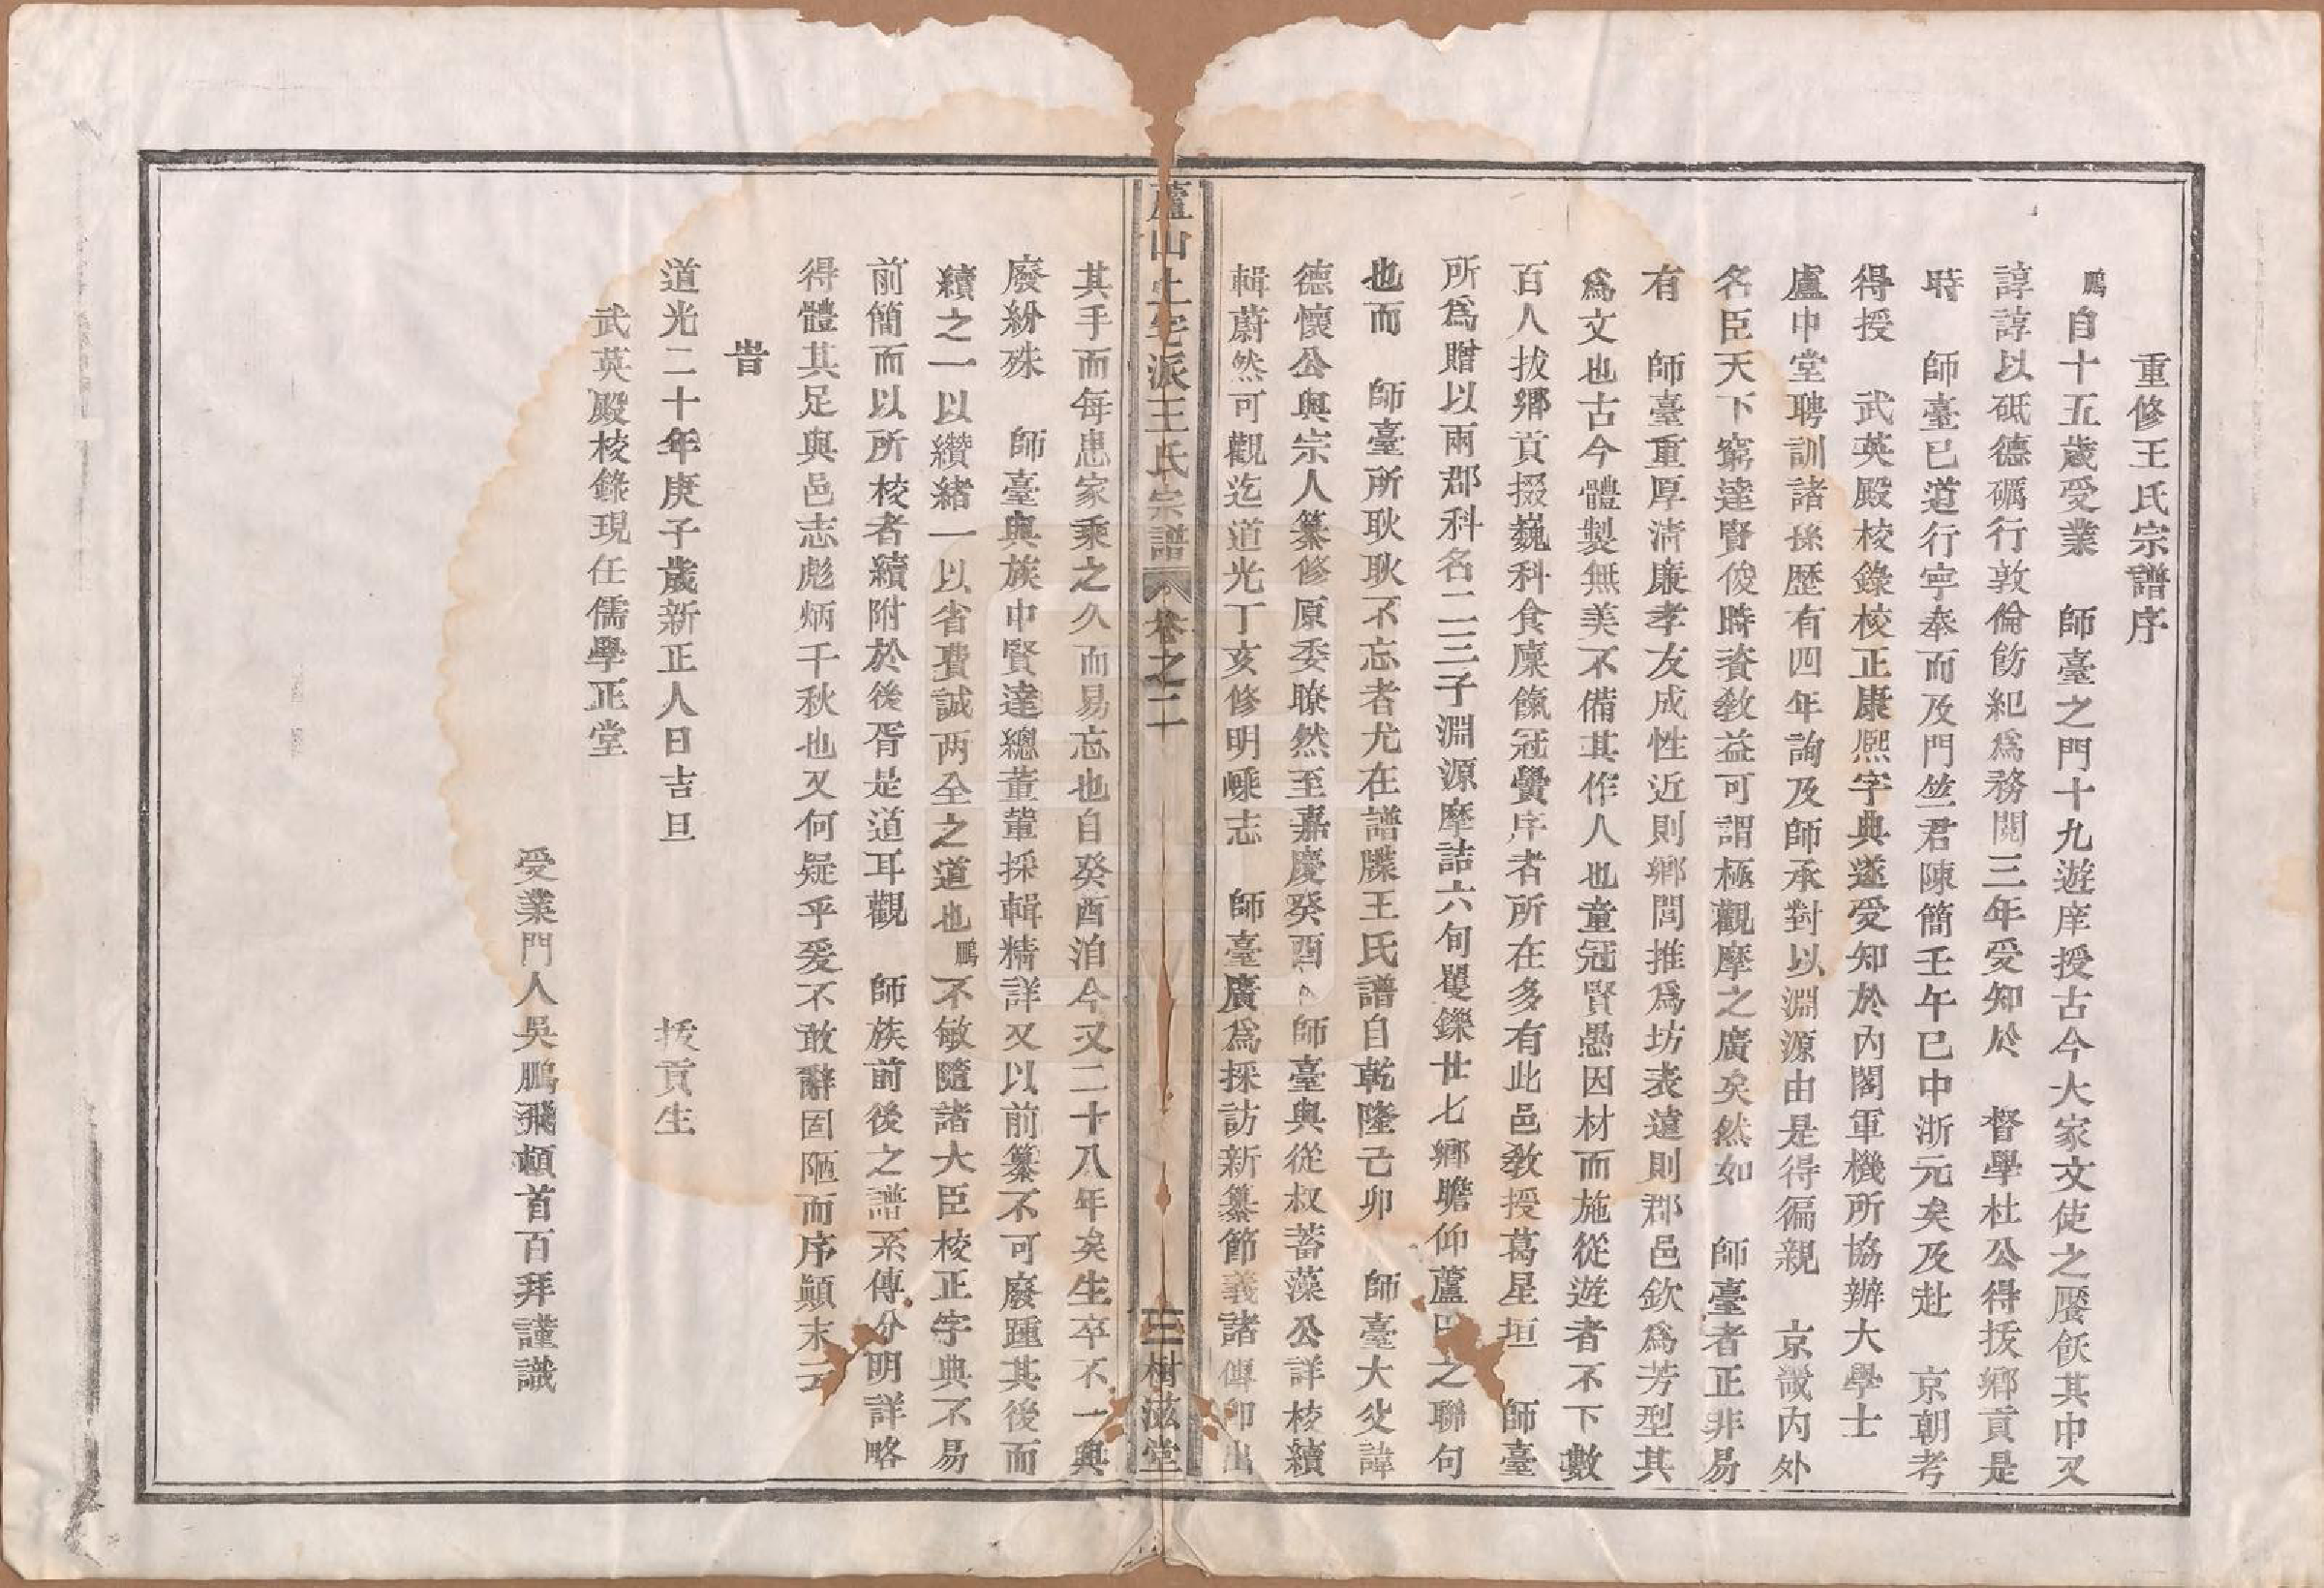 重修王氏宗譜序
鵬自十五歲受業　師臺之門十九遊庠授古今大家文使之饜飫其中又
諄諄以砥德礪行敦倫飭紀爲務閱三年受知於　督學杜公得拔鄉貢是
時　師臺已道行寧奉而及門竺君陳簡壬午已中浙元矣及赴　京朝考
得授　武英殿校錄校正康熙字典遂受知於內閣軍機所協辦大學士
盧中堂聘訓諸孫歷有四年詢及師承對以淵源由是得徧親　京畿內外
名臣天下窮達賢俊時資敎益可謂極觀摩之廣矣然如　師臺者正非易
有　師臺重厚淸廉孝友成性近則鄉閭推爲坊表遠則郡邑欽爲芳型其
爲文也古今體製無美不備其作人也童冠賢愚因材而施從遊者不下數
百人拔鄉貢掇巍科食廩餼冠黌序者所在多有此邑敎授葛星垣　師臺
所爲贈以兩郡科名二三子淵源摩詰六旬矍鑠廿七鄉瞻仰蘆之聯句
也而　師臺所耿耿不忘者尤在譜牒王氏譜自乾隆己卯　師臺大父諱
德懷公與宗人纂修原委瞭然至嘉慶癸酉　師臺與從叔蓄藻公詳校續
輯蔚然可觀迄道光丁亥修明嵊志　師臺廣爲採訪新纂節義諸傳卽出
蘆山上宅派王氏宗譜　卷之二　三　樹滋堂
其手而每患家乘之久而易忘也自癸酉洎今又二十八年矣生卒不一與
廢紛殊　師臺與族中賢達總董葷採輯精詳又以前纂不可廢踵其後而
續之一以纘緒一以省費誠两全之道也鵬不敏隨諸大臣校正字典不易
前簡而以所校者續附於後胥是道耳觀　師族前後之譜系傳分明詳略
得體其足與邑志彪炳千秋也又何疑乎爰不敢辭固陋而序顚末云
旹
道光二十年庚子歲新正人日吉旦　拔貢生
武英殿校錄現任儒學正堂
受業門人吳鵬飛頓首百拜謹識